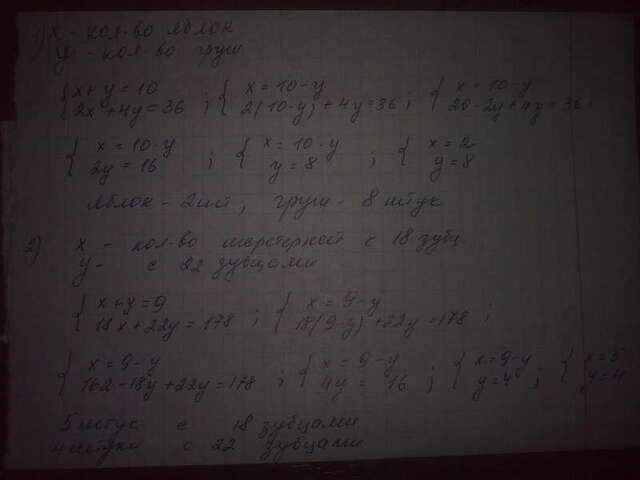 1) x - кол-во яблок
y - кол-во груш
{ x+y=10 2x+4y=36 ; { x=10-y 2(10-y)+4y=36 ; { x=10-y 20-2y+4y=36 ;
{ x=10-y 2y=16 ; { x=10-y y=8 ; { x=2 y=8
Яблок - 2шт, груш - 8 штук
2) x - кол-во шерстерней с 18 зубц
y - с 22 зубцами
{ x+y=9 18x+22y=178 ; { x=9-y 18(9-y)+22y=178 ;
{ x=9-y 162-18y+22y=178 ; { x=9-y 4y=16 ; { x=9-y y=4 ; { x=5 y=4
5 штук с 18 зубцами
4 штуки с 22 зубцами